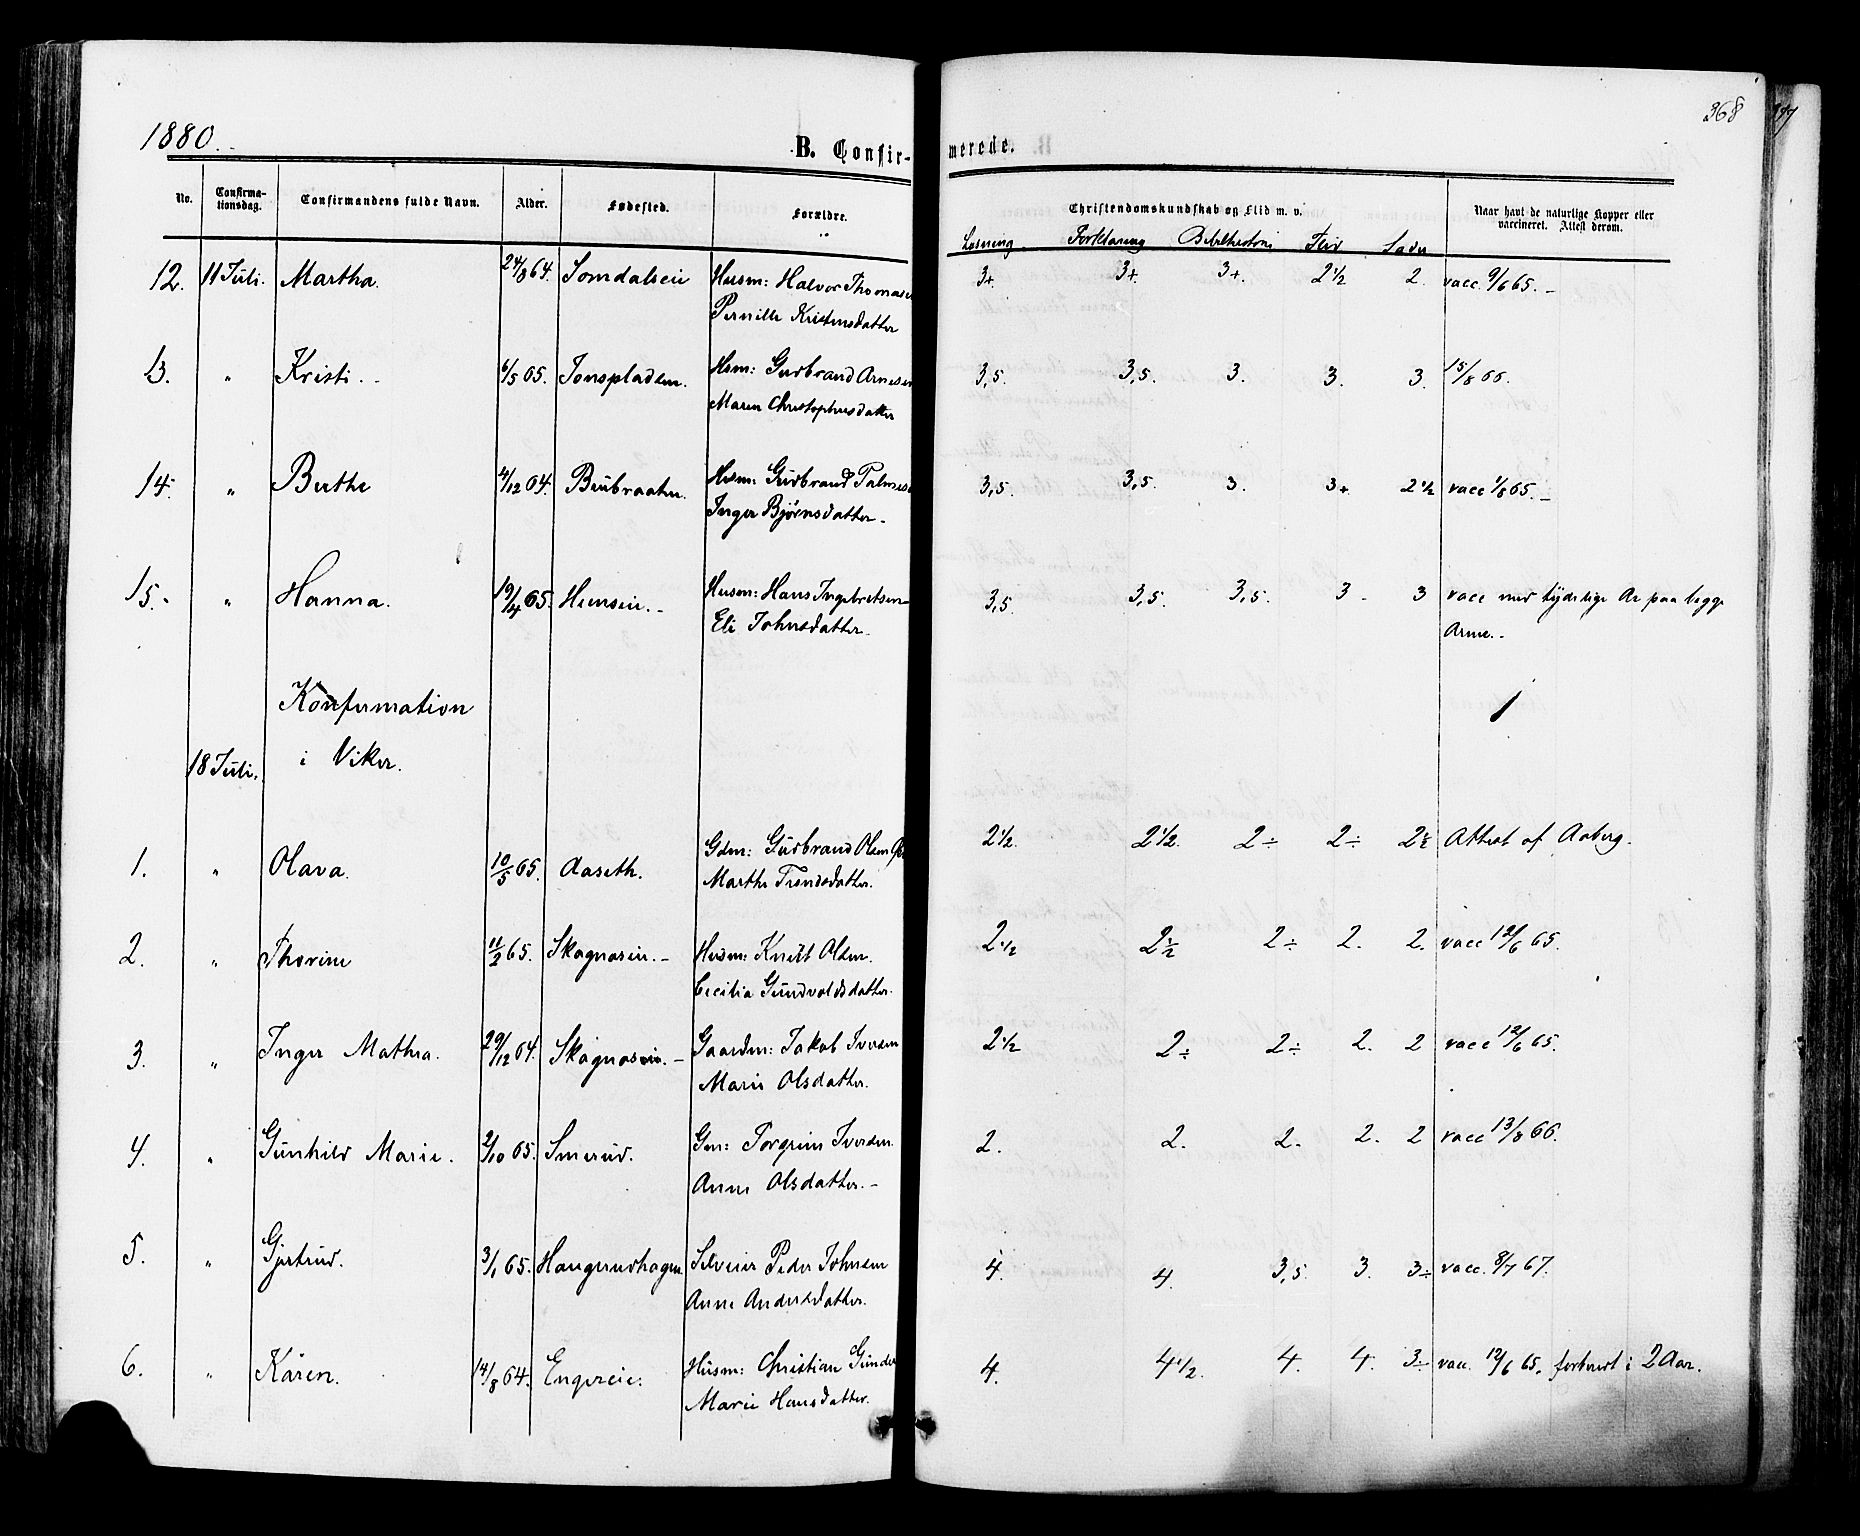 1880.
B. Confirmerede.
368
No. Confirmationsdag. Confirmandens fulde Navn. Alder. Fødested. Forældre. Christendomskundskab og Flid m. v. Naar havt de naturlige Kopper eller vaccineret. Attest derom.
Læsning. Forklaring Bibelhistorie Flid Sæder
12. 11 Juli. Martha. 24/8 64. Somdalseie Husm: Halvor Thomasen 3+ 3+ 3+. 2 1/2 2. vacc. 9/6 65. –
Pernille Kristensdatter
13. " Kristi. 6/5 65. Jonspladsen. Hsm: Gudbrand Arnesen 3,5. 3,5. 3. 3. 3. 15/8 66.
Maren Christophersdatter
14. " Berthe 4/12 64. Braabraaten. Hsm: Gudbrand Palmesen 3,5. 3,5. 3. 3+ 2 1/2 vacc 1/8 65. –
Inger Bjørnsdatter –
15. " Hanna. 19/4 65. Hemseie. – Husm: Hans Ingebretsen 3,5. 3,5. 3,5. 3 3 vacc med tydelige Ar paa begge
Eli Johnsdatter. Arme. –
Konfirmation
18 Juli. i Viker.
1. " Olava. 10/5 65. Aaseth. Gdm: Gudbrand Olsen 2 1/2. 2 1/2. 2 ÷ 2 ÷ 2 1/2 Attest af Aaberg.
Marthe Trondsdatter.
2. " Thorine 11/2 65. Skagnaseie. – Husm: Knut Olsen. 2 1/2 2 1/2 2 ÷ 2. 2. vacc 12/6 65.
Cecilia Gundvoldsdatter.
3. " Inger Mathea. 29/12 64. Skagnaseie. – Gaardm: Jakob Iversen 2 1/2 2 ÷ 2 ÷ 2. 2 vacc 12/6 65.
Marie Olsdatter.
4. " Gunhild Marie. 2/10 65. Smerud. Gm: Torgrim Iversen. 2. 2. 2. 2. 2 vacc 13/8 66.
Anne Olsdatter. –
5. " Gjertrud. 3/1 65. Haugerudhagen Selveier Peder Johnsen 4. 4. 3,5. 3. 3÷ vacc. 8/7 67.
Anne Andersdatter.
6. " Karen. 14/8 64. Engereie. Husm: Christian Gunder 4. 4 1/2. 4. 4. 3÷ vac. 12/6 65. forberedt i 2 Aar.
Marie Hansdatter.